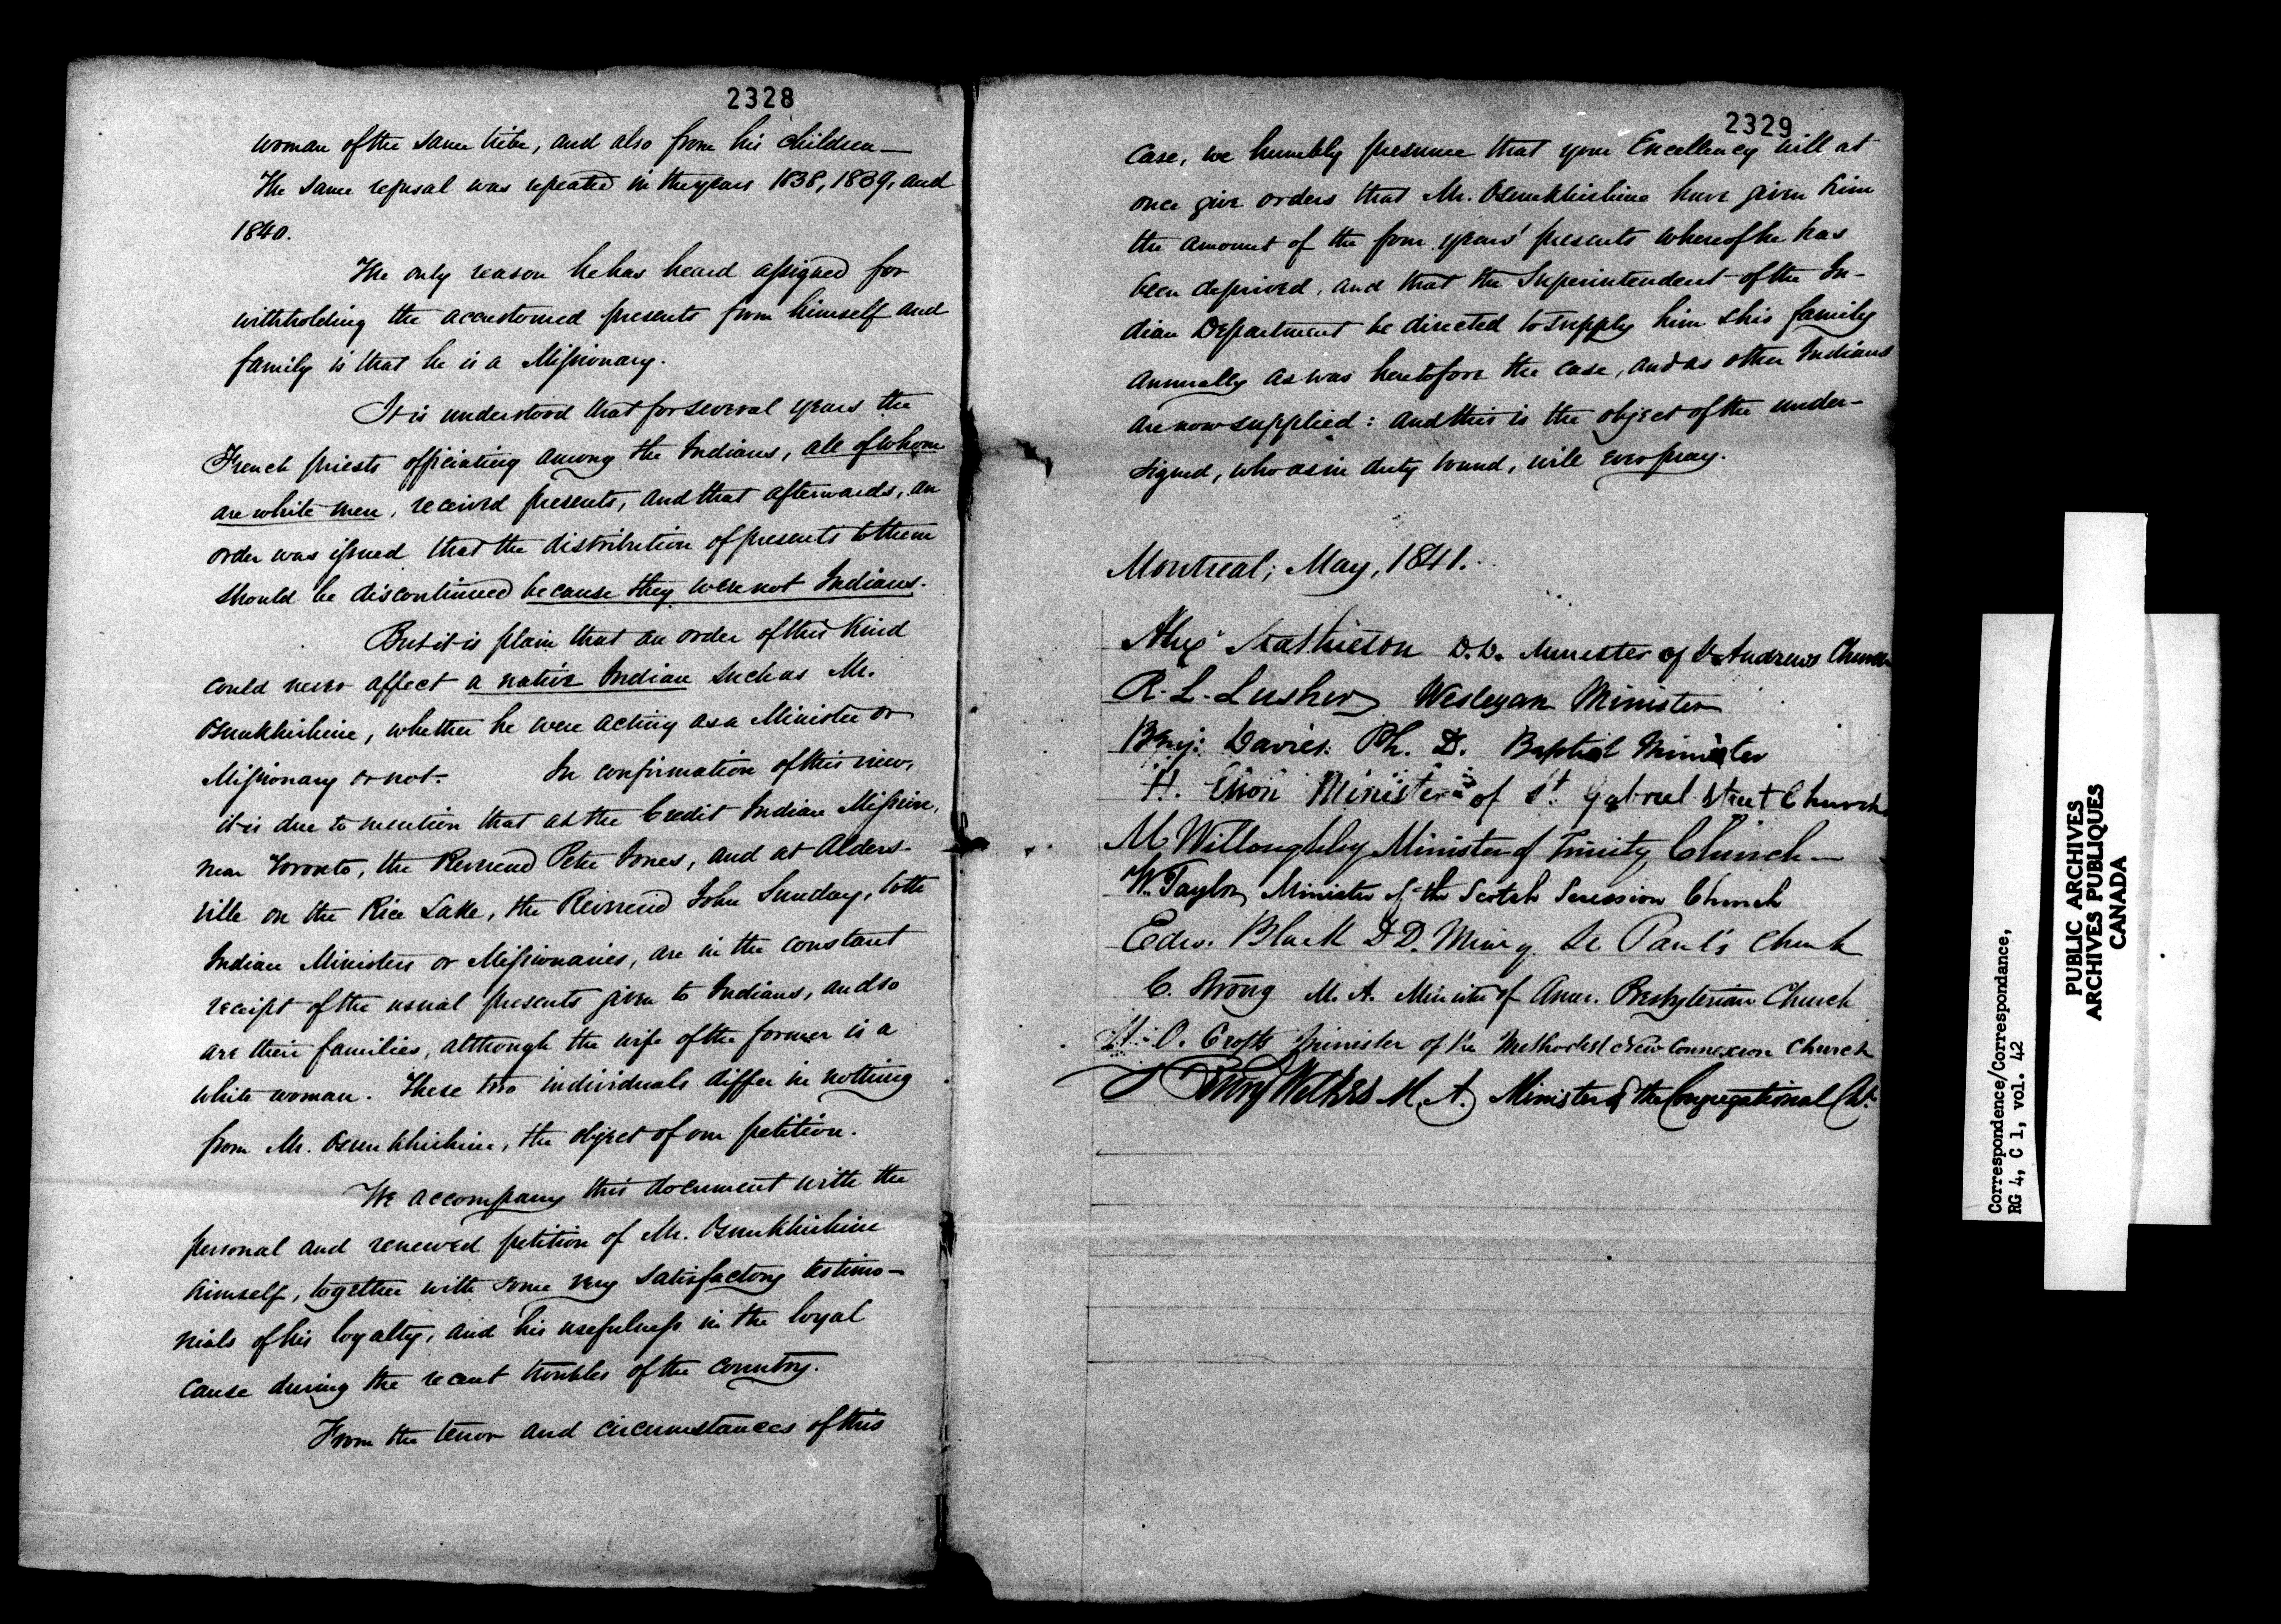 2328
woman of the same tribe, and also from his children—
The same refusal was repeated in the years 1838, 1839, and
1840.
The only reason he has heard assigned for
withholding the accustomed presents from himself and
family is that he is a Missionary.
It is understood that for several years the
French priests officiating among the Indians, all of whom
are white men, received presents, and that afterwards, an
order was issued that the distribution of presents to them
should be discontinued because they were not Indians.
But it is plain that an order of this kind
could never affect a native Indian such as Mr.
Osunkhirhine, whether he were acting as a Minister or
Missionary or not. In confirmation of this view,
it is due to mention that at the Credit Indian Mission,
near Toronto, the Reverend Peter Jones, and at Alders-
ville on the Rice Lake, the Reverend John Sunday, both
Indian Ministers or Missionaries, are in the constant
receipt of the usual presents given to Indians, and so
are their families, although the wife of the former is a
white woman. These two individuals differ in nothing
from Mr. Osunkhirhine, the object of our petition.
We accompany this document with the
personal and renewed petition of Mr. Osunkhirhine
himself, together with some very satisfactory testimo-
nials of his loyalty, and his usefulness in the loyal
cause during the recent troubles of the country.
From the tenor and circumstances of this
2329
case, we humbly presume that your Excellency will at
once give orders that Mr. Osunkhirhine have given him
the amount of the four years' presents whereof he has
been deprived, and that the Superintendent of the In-
dian Department be directed to supply him & his family
annually as was heretofore the case, and as other Indians
are now supplied: and this is the object of the under-
signed, who as in duty bound, will ever pray.
Montreal; May, 1841.
Alexr Mathieson D.D. Minister of St Andrews Church
R. L. Lusher Wesleyan Minister
Benj: Davies. Ph. D. Baptist Minister
H. Esson Minister of St. Gabriel Street Church
M Willoughby Minister of Trinity Church—
W. Taylor Minister of the Scotch Secession Church
Edw. Black D D. Minr of St Paul's Church
C. Strong M. A. Minister of Amer. Presbyterian Church
H. O. Crofts Minister of the Methodist New Connexion Church
Henry Wilkes M. A. Minister of the Congregational Ch.
Correspondence/Correspondance,
RG 4, C 1, vol. 42
PUBLIC ARCHIVES
ARCHIVES PUBLIQUES
CANADA